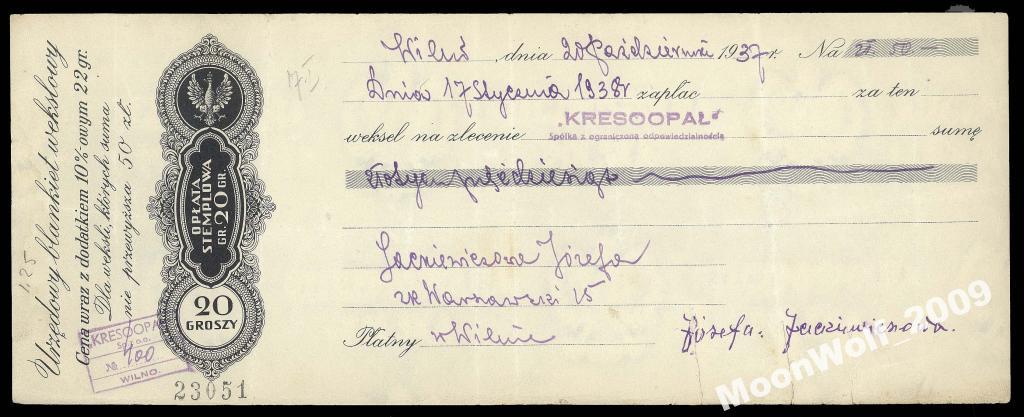 Urzędowy blankiet wekslowy
Cena wraz z dodatkiem 10%-owym 22 gr.
Dla weksli, których suma
nie przewyższa 50 zł.
OPŁATA
STEMPLOWA
GR. 20 GR.
20
GROSZY
KRESOOPAŁ
Sp. z o.o.
№ 400
WILNO.
23051
1.25
Wilno, dnia 20 Października 1937 r. Na zł 50 —
Dnia 17 Stycznia 1938 r zapłac za ten
"KRESOOPAŁ"
weksel na zlecenie Spółka z ograniczoną odpowiedzialnością sumę
złotych pięćdziesiąt
Jackiewiczowa Józefa
zk Warszawski 15
Płatny w Wilnie
Józefa Jackiewiczowa.
MoonWolf_2009